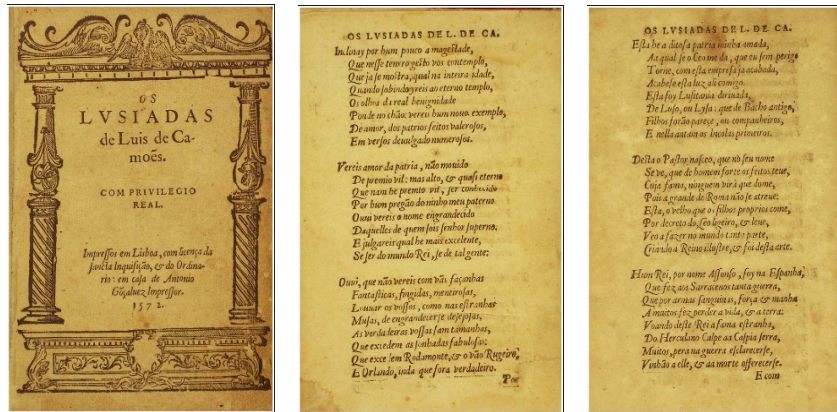 OS
LVSIADAS
de Luis de Ca-
moẽs.
COM PRIVILEGIO
REAL.
Impressos em Lisboa, com licença da
sancta Inquisição, & do Ordina-
rio: em casa de Antonio
Gõçaluez Impressor.
1572.
OS LVSIADAS DE L. DE CA.
Inclinay por hum pouco a magestade,
Que nesse tenro gesto vos contemplo,
Que ja se mostra, qual na inteira idade,
Quando subindo yreis ao eterno templo,
Os olhos da real benignidade
Ponde no chão: vereis hum nouo exemplo,
De amor, dos patrios feitos valerosos,
Em versos deuulgado numerosos.
Vereis amor da patria, não mouido
De premio vil: mas alto, & quasi eterno
Que nam he premio vil, ser conhecido
Por hum pregão do ninho meu paterno
Ouui vereis o nome engrandecido
Daquelles de quem sois senhor superno.
E julgareis qual he mais excelente,
Se ser do mundo Rei, se de tal gente:
Ouui, que não vereis com vãs façanhas
Fantasticas, fingidas, mentirosas,
Louuar os vossos, como nas estranhas
Musas, de engrandecerse desejosas,
As verdadeiras vossas sam tamanhas,
Que excedem as sonhadas fabulosas:
Que excedem Rodamonte, & o vão Rugeiro,
E Orlando, inda que fora verdadeiro.
Por
OS LVSIADAS DE L. DE CA.
Esta he a ditosa patria minha amada,
Aa qual se o Ceo me da, que eu sem perigo
Torne, com esta empresa ja acabada,
Acabese esta luz ali comigo.
Esta foy Lusitania diriuada,
De Luso, ou Lysa: que de Bacho antigo,
Filhos forão parece, ou companheiros,
E nella antam os Incolas primeiros.
Desta o Pastor nasceo, que no seu nome
Se ve, que de homem forte os feitos teue,
Cuja fama, ninguem virà que dome,
Pois a grande de Roma não se atreue:
Esta, o velho que os filhos proprios come,
Por decreto do Ceo ligeiro, & leue,
Veo a fazer no mundo tanta parte,
Criando a Reino illustre, & foi desta arte.
Hum Rei, por nome Affonso, foy na Espanha,
Que fez aos Sarracenos tanta guerra,
Que por armas sanguinas, força & manha
A muitos fez perder a vida, & a terra:
Voando deste Rei a fama estranha,
Do Herculano Calpe aa Caspia serra,
Muitos, pera na guerra esclarecerse,
Vinhão a elle, & aa morte offerecerse.
E com